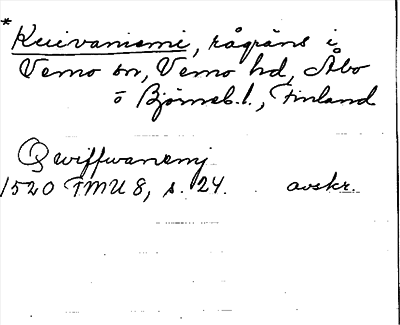 *
Kuivaniemi, rågräns i
Vemo sn, Vemo hd, Åbo
o Björneb. l., Finland
Qwiffwanemj
1520 FMU 8, s. 24. avskr.